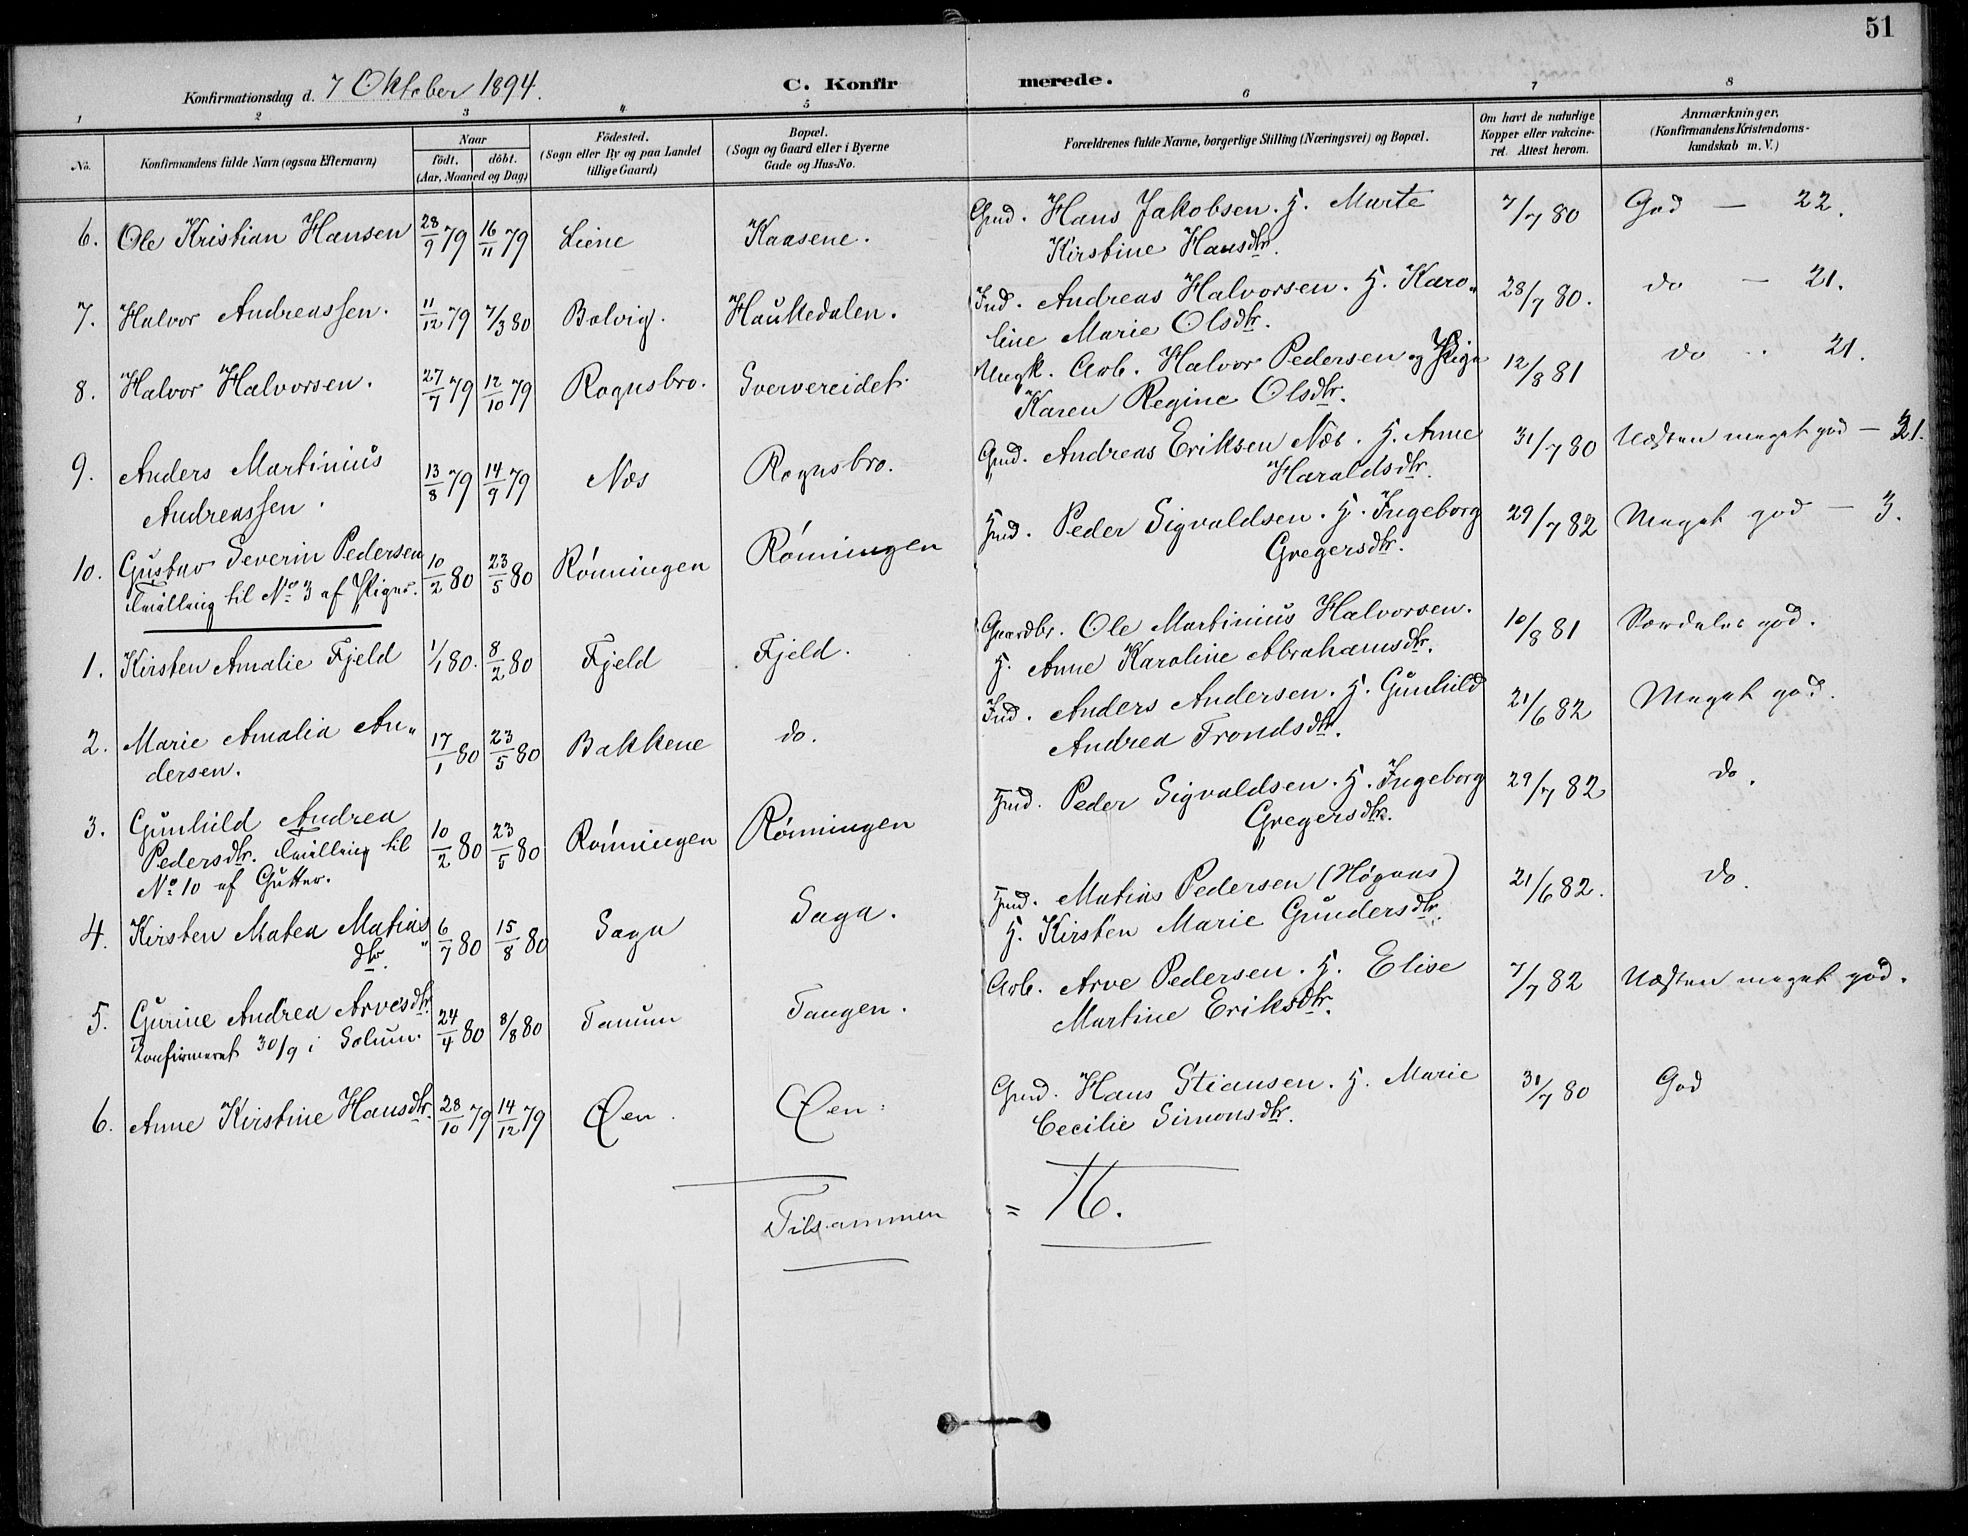 51
Konfirmationsdag d. 7 Oktober 1894. C. Konfirmerede.
1 2 3 4 5 6 7 8
No. Konfirmandens fulde Navn (ogsaa Efternavn) Naar födt. döbt. (Aar, Maaned og Dag) Födested. (Sogn eller By og paa Landet tillige Gaard) Bopæl. (Sogn og Gaard eller i Byerne Gade og Hus-No. Forældrenes fulde Navne, borgerlige Stilling (Næringsvei) og Bopæl. Om havt de naturlige Kopper eller vakcineret. Attest herom. Anmærkninger. (Konfirmandens Kristendomskundskab m. V.)
6. Ole Kristian Hansen 28/9 79 16/11 79 Liene Kaasene. Gmd. Hans Jakobsen. H. Marte 7/7 80 God — 22.
Kirstine Hansdtr.
7. Halvor Andreassen. 11/12 79 7/3 80 Bolvig. Haukedalen. Ind. Andreas Halvorsen. H. Karo„ 28/7 80. do — 21.
line Marie Olsdtr.
8. Halvor Halvorsen. 27/7 79 12/10 79 Rognsbro. Sververeidet. Ungk. Arb. Halvor Pedersen og Pige 12/8 81 do .. 21.
Karen Regine Olsdtr.
9. Anders Martinius 13/8 79 14/9 79 Næs Rognsbro. Gmd. Andreas Eriksen Næs. H. Anne 31/7 80 Næsten meget god — 21.
Andreassen. Haraldsdtr.
10. Gustav Severin Pedersen 10/2 80 23/5 80 Rønningen Rønningen Hmd. Peder Sigvaldsen. H. Ingeborg 29/7 82 Meget god — 3.
Tvilling til No 3 af Piger. Gregersdtr.
1. Kirsten Amalie Fjeld 1/1 80. 8/2 80 Fjeld Fjeld. Gaardbr. Ole Martinius Halvorsen. 10/8 81 Særdeles god.
H. Anne Karoline Abrahamsdtr.
2. Marie Amalia An„ 17/1 80 23/5 80 Bakkene do. Ind. Anders Andersen. H. Gunhild 21/6 82 Meget god.
dersen. Andrea Trondsdtr.
3. Gunhild Andrea 10/2 80 23/5 80 Rønningen Rønningen Hmd. Peder Sigvaldsen. H. Ingeborg 29/7 82 do.
Pedersdtr. Tvilling til Gregersdtr.
No 10 af Gutter.
4. Kirsten Matea Matias„ 6/7 80 15/8 80 Saga Saga. Hmd. Matias Pedersen (Högaas) 21/6 82. do.
dtr. H. Kirsten Marie Gundersdtr.
5. Gurine Andrea Arvesdtr. 24/4 80 8/8 80 Tanum Tangen. Arb. Arve Pedersen. H. Elise 7/7 82 Næsten meget god.
Konfirmeret 30/9 i Solum. Martine Eriksdtr.
6. Anne Kirstine Hansdtr. 28/10 79 14/12 79 Øen. Øen. Gmd. Hans Stiansen. H. Marie 31/7 80 God
Cecilie Simonsdtr.
Tilsammen = 16.